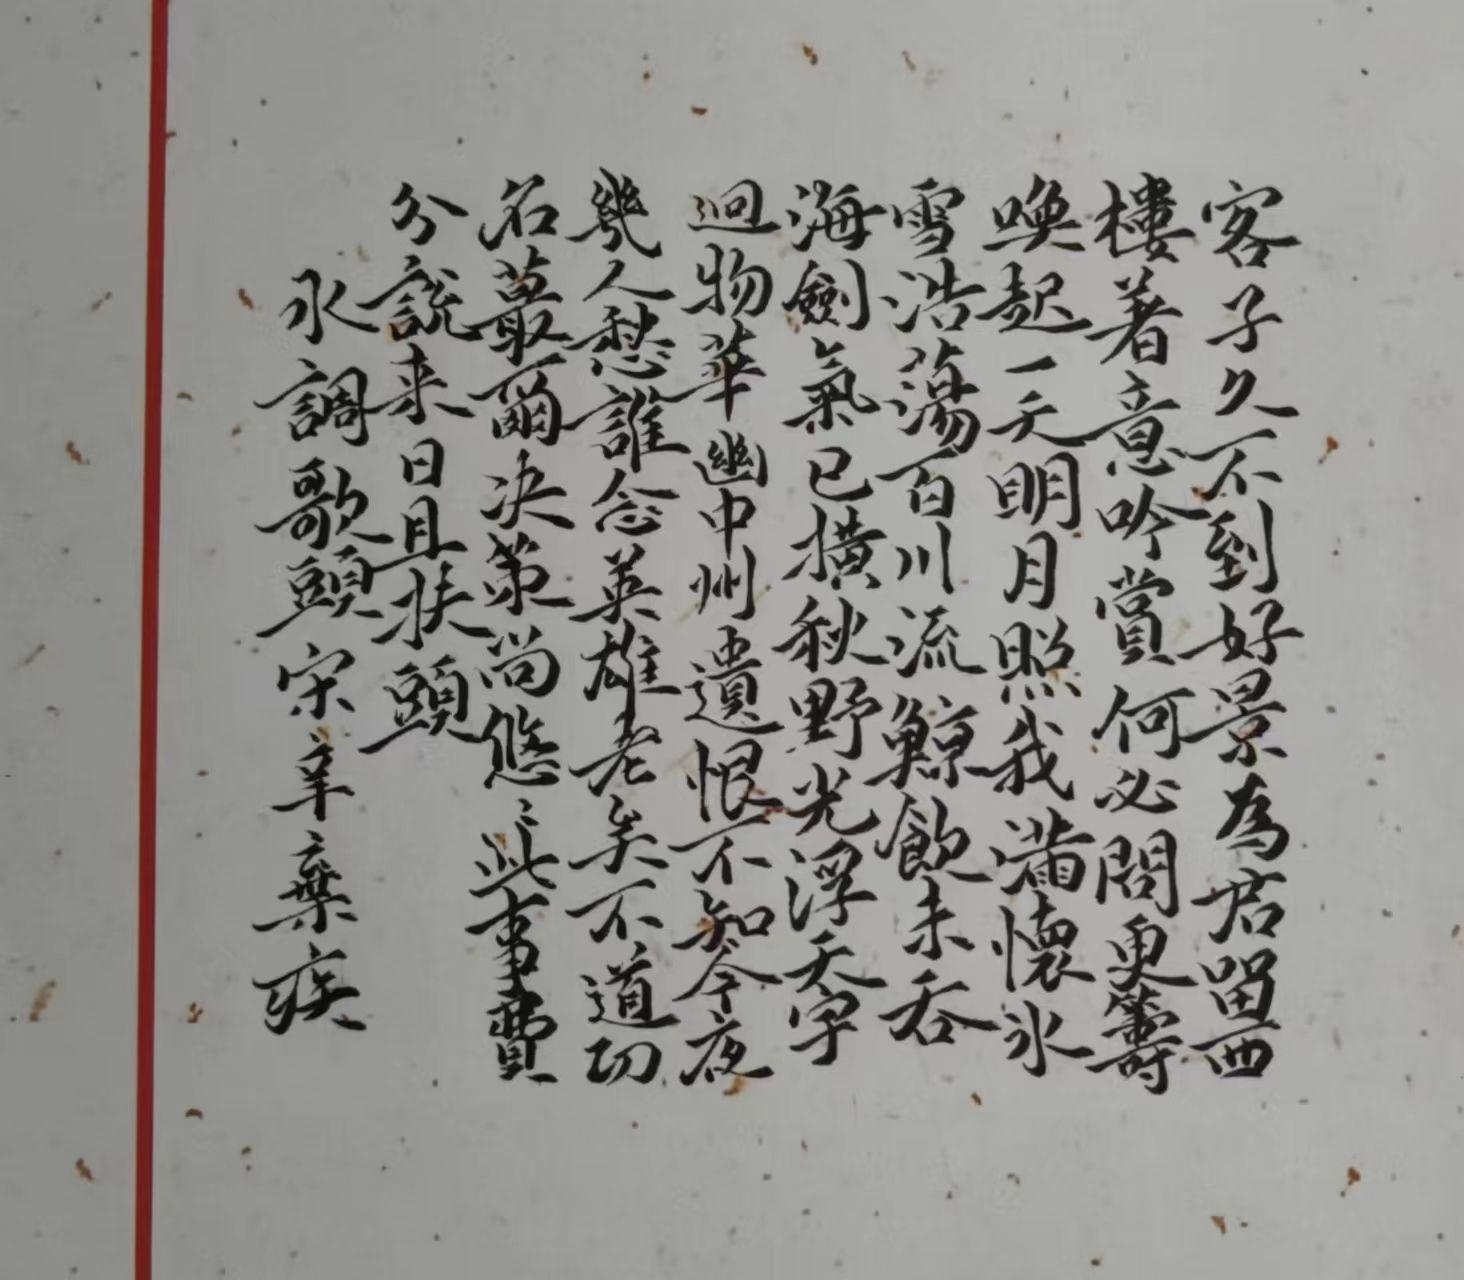 客子久不到好景為君留西
樓著意吟賞何必問更籌
喚起一天明月照我滿懷冰
雪浩蕩百川流鯨飲未吞
海劍氣已橫秋野光浮天宇
迥物華幽中州遺恨不知今夜
幾人愁誰念英雄老矣不道功
名蕞爾决策尚悠〻此事費
分說来日且扶頭
水調歌頭宋辛棄疾